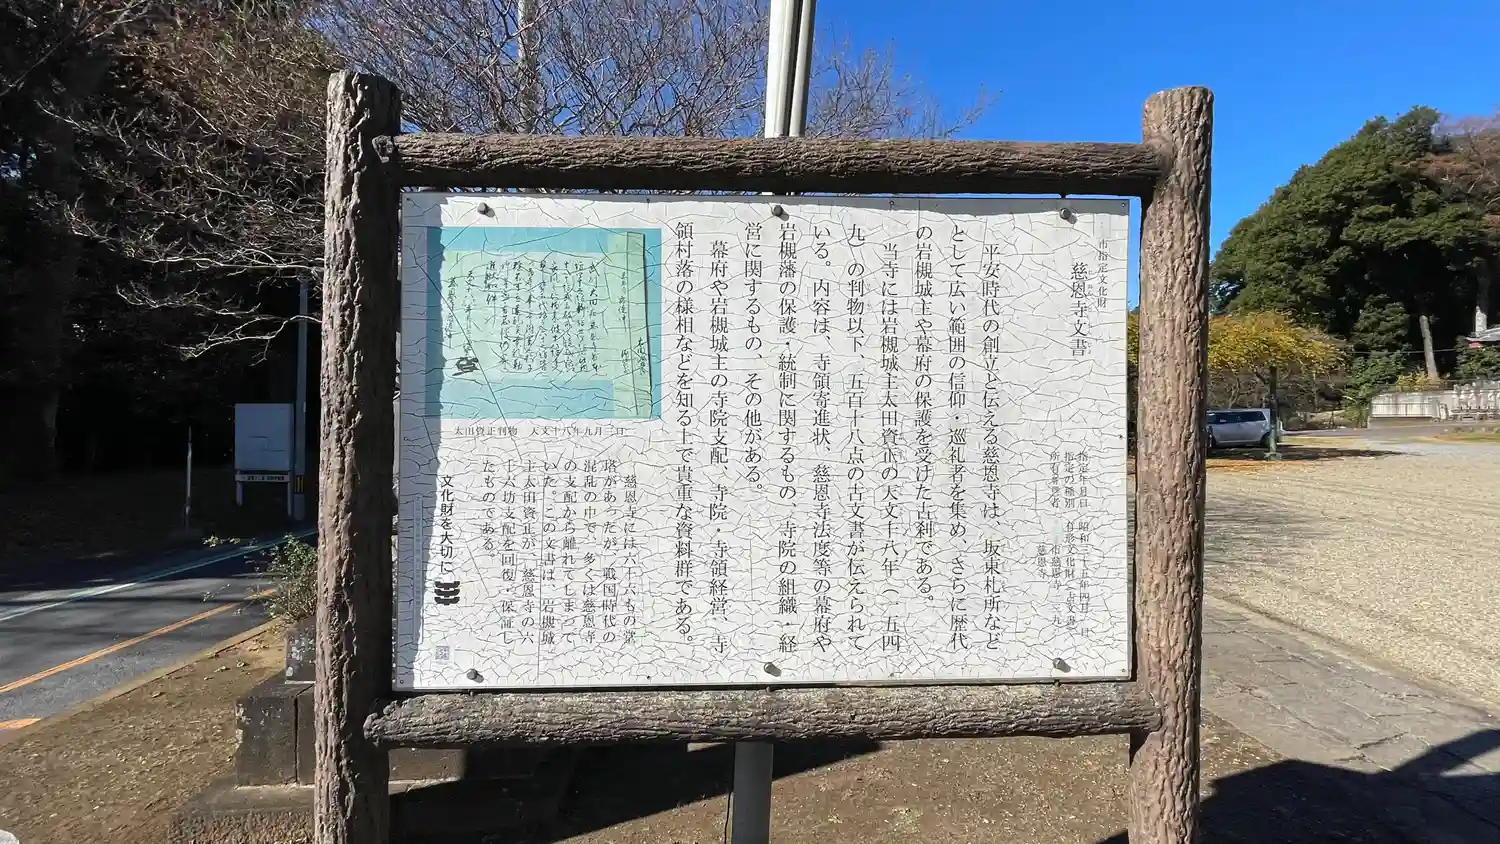 市指定文化財
慈恩寺文書
指定年月日　昭和三十五年四月一日
指定の種別　有形文化財・古文書
所有者
慈恩寺
平安時代の創立と伝える慈恩寺は、坂東札所など
として広い範囲の信仰・巡礼者を集め、さらに歴代
の岩槻城主や幕府の保護を受けた古刹である。
当寺には岩槻城主太田資正の天文十八年（一五四
九）の判物以下、五百十八点の古文書が伝えられて
いる。内容は、寺領寄進状、慈恩寺法度等の幕府や
岩槻藩の保護・統制に関するもの、寺院の組織・経
営に関するもの、その他がある。
幕府や岩槻城主の寺院支配、寺院・寺領経営、寺
領村落の様相などを知る上で貴重な資料群である。
太田資正判物　天文十八年九月三日
慈恩寺には六十六もの堂
塔があったが、戦国時代の
混乱の中で、多くは慈恩寺
の支配から離れてしまって
いた。この文書は、岩槻城
主太田資正が、慈恩寺の六
十六坊支配を回復・保証し
たものである。
文化財を大切に